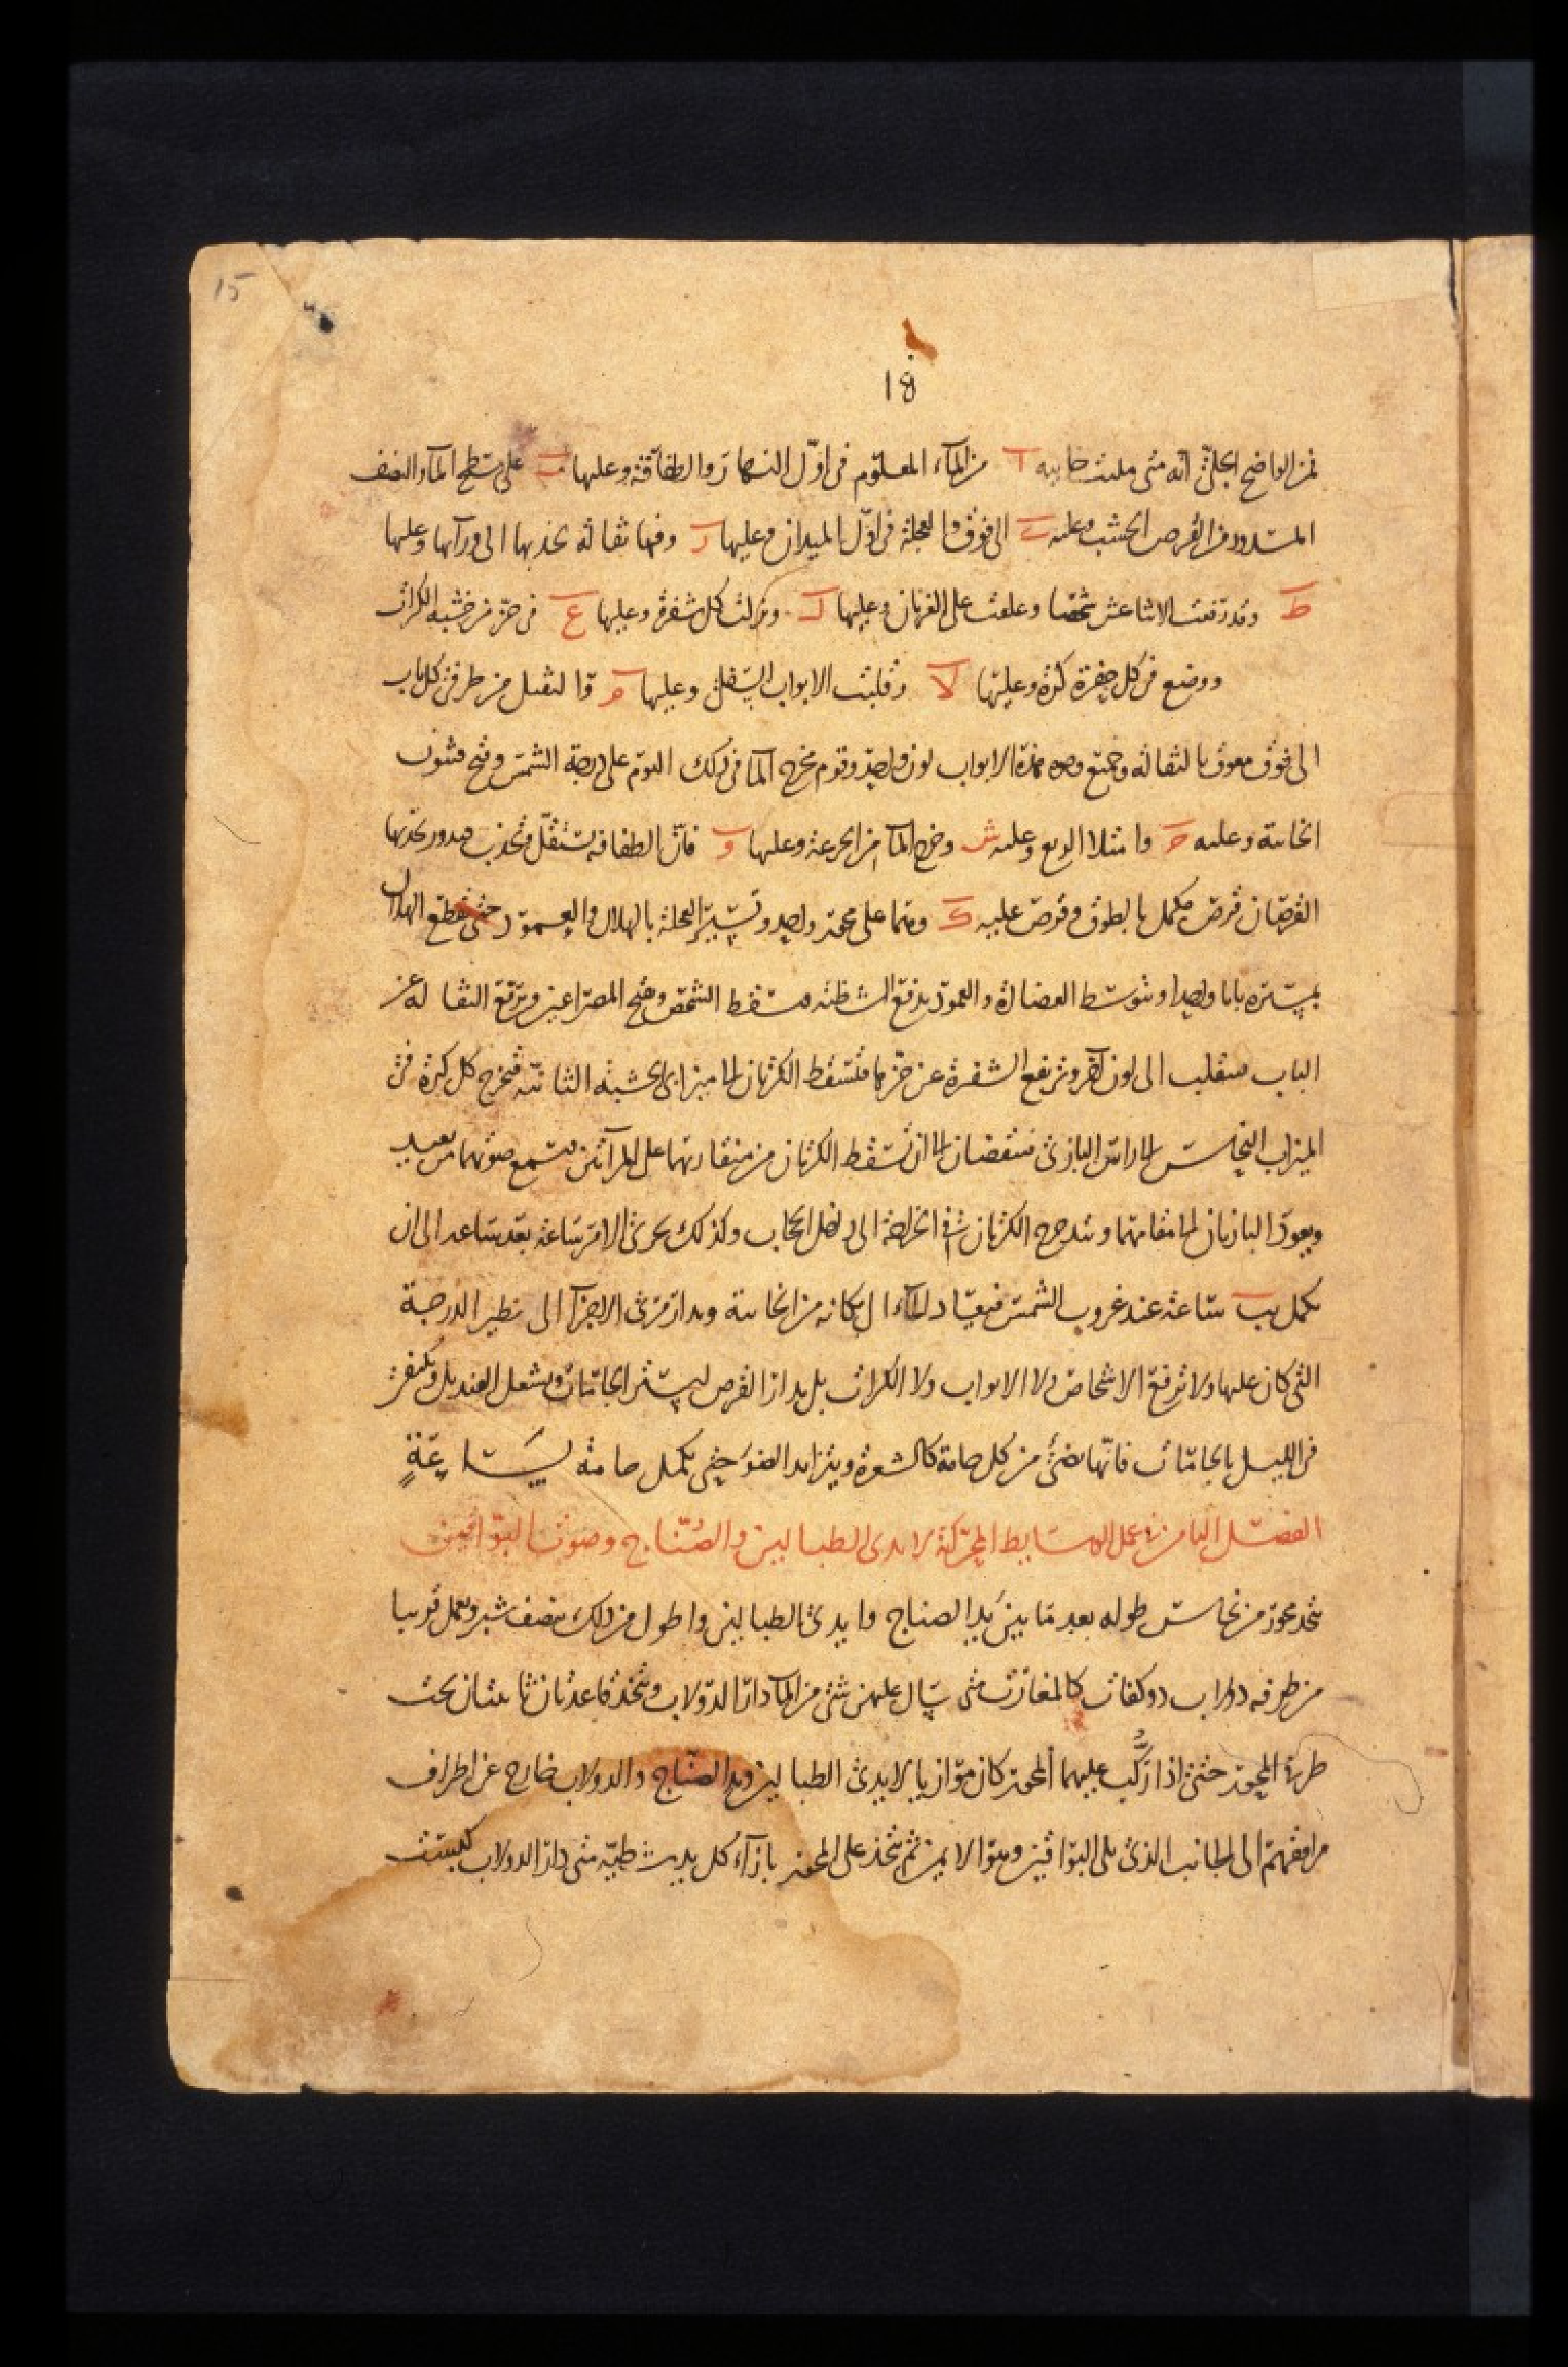 15
18
فمن الواضح الجلي انه متى ملئت خابيه ا من المآء المعلوم فى اوّل النهار والطفافة وعليها ب على سطح المآ والنصف
المسدود من القرص الخشب وعليه الى فوق والعجلة فى اول الميدان وعليها ر وفيها ثقالة تجذبها الى ورآيها وعليها
ط وقد رفعت الاثنا عشر شخصا وعلقت على الفرنان وعليها ل وتركت كل شفرة وعليها ع فى حز من خشبه الكرات
ووضع فى كل حفرة كرة وعليها لا وقلبت الابواب السفلى وعليها م والثقيل من طرفى كل باب
الى فوق معوق بالثقاله وجميع وجوه هذه الابواب لون واحد وقوم مخرج المآ فى ذلك اليوم على درجة الشمس وفتح فيثون
الخابية وعليه ح وامتلا الربع وعليه ش وخرج المآ من الجزعة وعليها و فان الطفافه تستثقل وتجذب فيدور بجذبها
القرصان قرص مكمل بالطوق وقرص عليه ك وهما على محور واحد وتسير العجلة بالهلال والعمود حتى يقطع الهلال
بمسيره بابا واحدا ويتوسط العضادة والعمود يدفع الشظيه فيسقط الشخص وفتح المصراعين وترتفع الثقاله عن
الباب فينقلب الى لون آخر وترتفع الشفرة عن حزها فتسقط الكرتان الى ميزابى الخشبه الثانيه فتخرج كل كرة فى
الميزاب النحاس الى راس البازى فينتفضان الى ان تسقط الكرتان من منقاريهما على المرآتين فيسمع صوتهما من بعيد
ويعود البازيان الى مقامهما وتتدحرج الكرتان فى انخراطه الى داخل الحجاب وكذلك يجرى الامر ساعة بعد ساعه الى ان
يكمل يب ساعة عند غروب الشمس فيعاد المآء الى مكانه من الخابية ويدار مرى الاجزآ الى نظير الدرجة
التى كان عليها ولا ترفع الاشخاص ولا الابواب ولا الكرات بل يدار القرص ليستر الجامات ويشعل القنديل ويكتفى
فى الليل بالجامات فانها يضئ من كل جامة كالشعرة ويتزايد الضوء حتى تكمل جامة لساعة
الفصل الثامن فى عمل الوسايط المحركة لايدى الطبالين والصناج وصوت البواقين
يتخذ محور من نحاس طوله بعد ما بين يد الصناج وايدى الطبالين واطول من ذلك بنصف شبر ويعمل قريبا
من طرفه دولاب ذو كفات كالمغارف متى سال عليهن شئ من المآ دار الدولاب ويتخذ قاعدتان ثابتتان تحت
طرفى المحور حتى اذا ركب عليهما المحور كان موازيا لايدى الطبالين ويد الصناج والدولاب خارج عن اطراف
مرافقهم الى الجانب الذى يلى البواقين وهو الايمن ثم يتخذ على المحور بازآء كل يد شظية متى دار الدولاب كبست